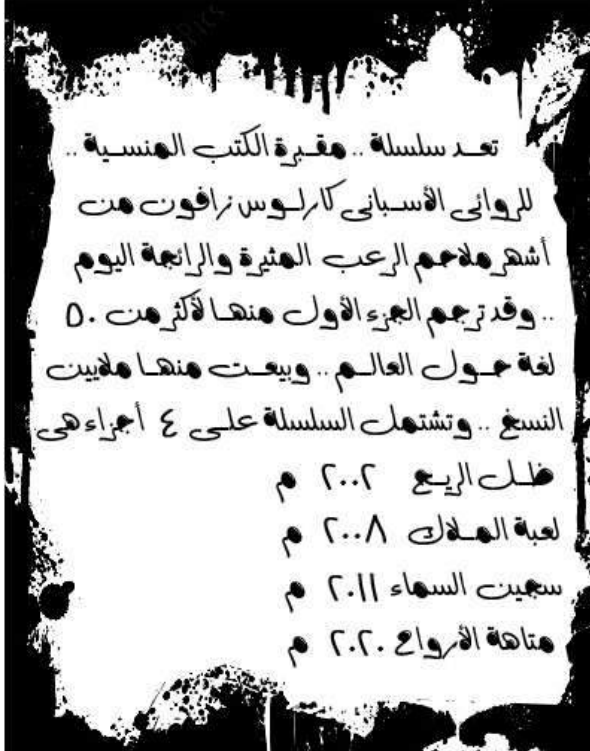 تعد سلسلة .. مقبرة الكتب المنسية ..
للروائى الأسبانى كارلوس زافون من
أشهر ملاحم الرعب المثيرة والرائجة اليوم
.. وقد ترجم الجزء الأول منها لأكثر من ٥٠
لغة حول العالم .. وبيعت منها ملايين
النسخ .. وتشتمل السلسلة على ٤ أجزاء هى
ظل الريح ٢٠٠٢ م
لعبة الملاك ٢٠٠٨ م
سجين السماء ٢٠١١ م
متاهة الأرواح ٢٠٢٠ م